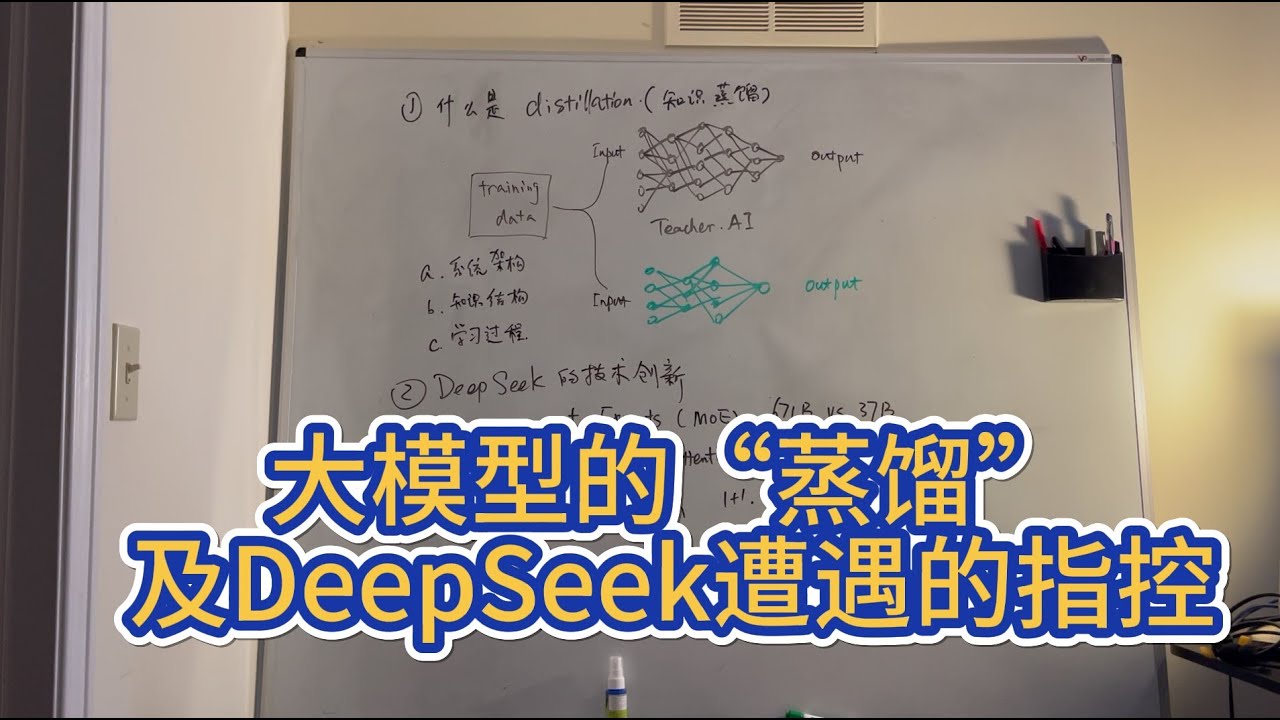 ① 什么是 distillation.(知识蒸馏)
Input
Output
training
data
Teacher.AI
a. 系统架构
b. 知识结构
c. 学习过程.
Input
Output
② DeepSeek 的技术创新
(MoE) 671B vs 37B
1+1.
大模型的“蒸馏”
及DeepSeek遭遇的指控